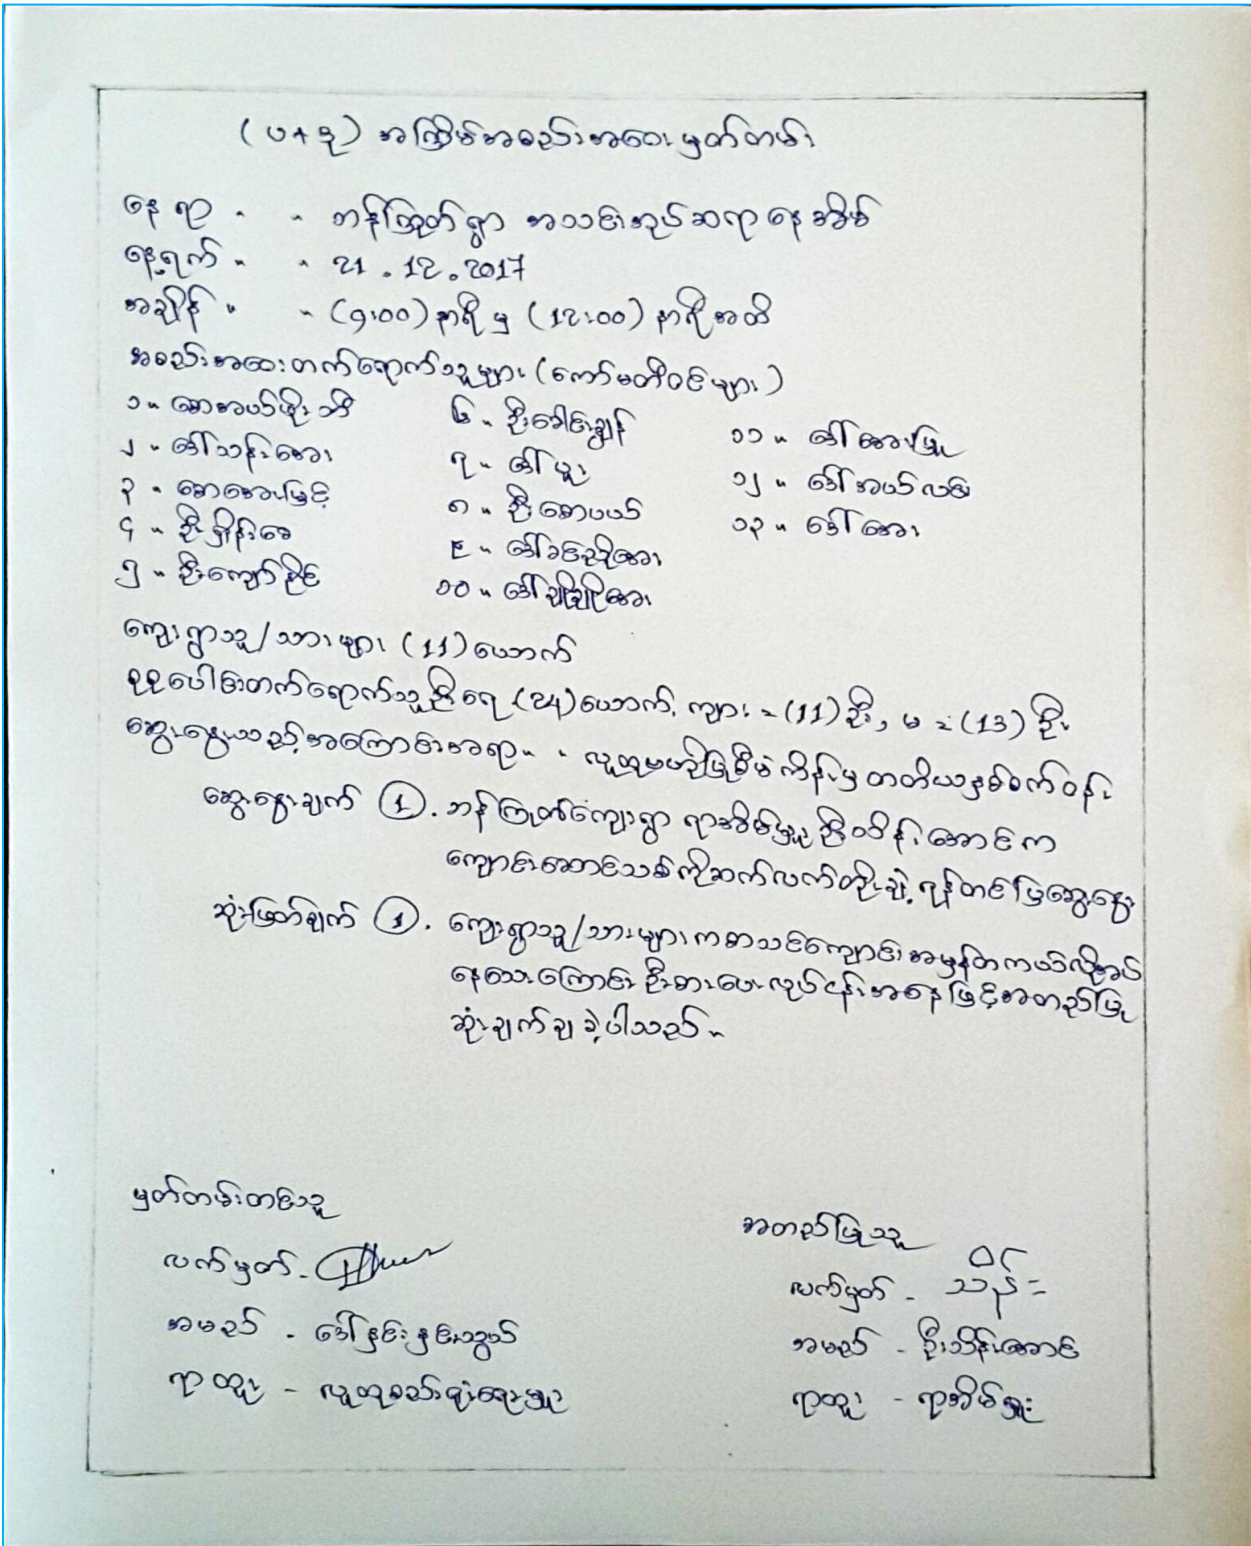 (ပ+ဒု) အကြိမ်အစည်းအဝေးမှတ်တမ်း
နေရာ ။ ။ ဘန်ကြုတ်ရွာ အသင်းအုပ်ဆရာနေအိမ်
နေ့ရက် ။ ။ 21.12.2017
အချိန် ။ ။ (9:00) နာရီမှ (12:00) နာရီအထိ
အစည်းအဝေးတက်ရောက်သူများ (ကော်မတီဝင်များ)
၁။ စောအယ်ဖိုးဘီ
၂။ ဒေါ်သန်းအေး
၃။ စောအေးမြင့်
၄။ ဦးရှိန်းဝေ
၅။ ဦးကျော်ဦးင်
၆။ ဦးခေါင်ချွန်
၇။ ဒေါ်ယူး
၈။ ဦးစောပယ်
၉။ ဒေါ်ခင်ညိုအေး
၁၀။ ဒေါ်ချိုချိုအေး
၁၁။ ဒေါ်အေးမြူ
၁၂။ ဒေါ်အယ်လင်း
၁၃။ ဒေါ်အေး
ကျေးရွာသူ/သားများ (11) ယောက်
စုစုပေါင်းတက်ရောက်သူဦးရေ (24) ယောက်, ကျား = (11) ဦး, မ = (13) ဦး
ဆွေးနွေးသည့်အကြောင်းအရာ ။ ။ လူထုဗဟိုပြုစီမံကိန်းမှ တတိယနှစ်စက်ဝန်း
ဆွေးနွေးချက် (1). ဘန်ကြုတ်ကျေးရွာ ရာအိမ်မှူး ဦးသိန်းအောင်က
ကျောင်းဆောင်သစ်ကိုဆက်လက်တိုးချဲ့ ရန်တင်ပြဆွေးနွေး
ဆုံးဖြတ်ချက် (1). ကျေးရွာသူ/သားများကစာသင်ကျောင်းအမှန်တကယ်လိုအပ်
နေသေးကြောင်းဦးစားပေးလုပ်ငန်းအနေဖြင့်အတည်ပြု
ဆုံးချက်ချခဲ့ပါသည်။
မှတ်တမ်းတင်သူ
လက်မှတ် -
အမည် - ဒေါ်နှင်းနှင်းသွယ်
ရာထူး - လူထုစည်းရုံးရေးမှူး
အတည်ပြုသူ
လက်မှတ် - သိန်း
အမည် - ဦးသိန်းအောင်
ရာထူး - ရာအိမ်မှူး